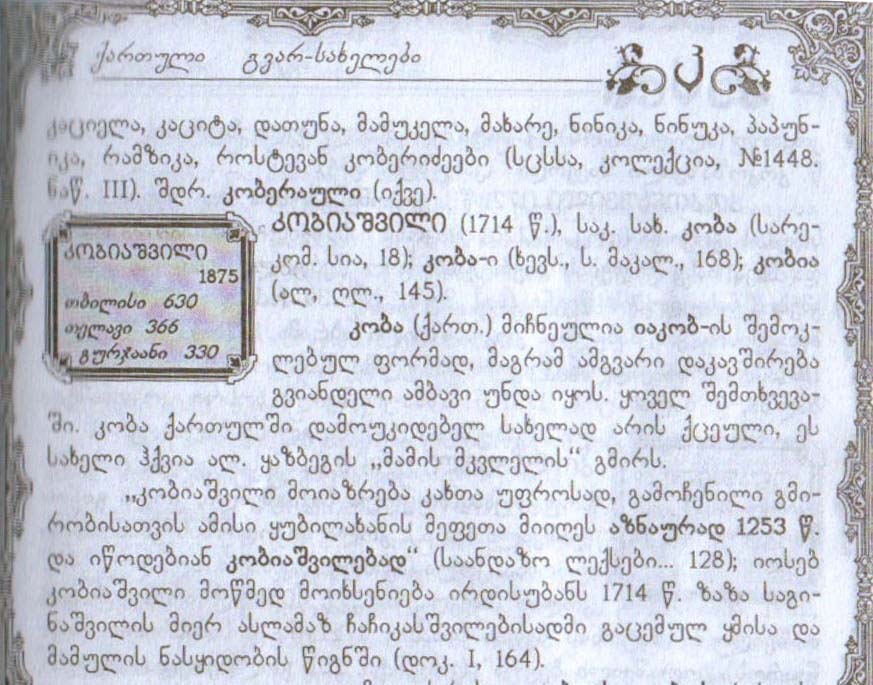 ქართული გვარ-სახელები
კ
კაციელა, კაციტა, დათუნა, მამუკელა, მახარე, ნინიკა, ნინუკა, პაპუნ-
იკა, რამზიკა, როსტევან კობერიძეები (სცსსა, კოლექცია, №1448.
ნაწ. III). შდრ. კობერაული (იქვე).
კობიაშვილი (1714 წ.), საკ. სახ. კობა (სარე-
კომ. სია, 18); კობა-ი (ხევს., ს. მაკალ., 168); კობია
(ალ, ღლ., 145).
კობიაშვილი
1875
თბილისი 630
თელავი 366
გურჯაანი 330
კობა (ქართ.) მიჩნეულია იაკობ-ის შემოკ-
ლებულ ფორმად, მაგრამ ამგვარი დაკავშირება
გვიანდელი ამბავი უნდა იყოს. ყოველ შემთხვევა-
ში. კობა ქართულში დამოუკიდებელ სახელად არის ქცეული, ეს
სახელი ჰქვია ალ. ყაზბეგის „მამის მკვლელის“ გმირს.
„კობიაშვილი მოიაზრება კახთა უფროსად, გამოჩენილი გმი-
რობისათვის ამისი ყუბილახანის მეფეთა მიიღეს აზნაურად 1253 წ.
და იწოდებიან კობიაშვილებად“ (საანდაზო ლექსები... 128); იოსებ
კობიაშვილი მოწმედ მოიხსენიება ირდისუბანს 1714 წ. ზაზა საგი-
ნაშვილის მიერ ასლამაზ ჩაჩიკასშვილებისადმი გაცემულ ყმისა და
მამულის ნასყიდობის წიგნში (დოკ. I, 164).